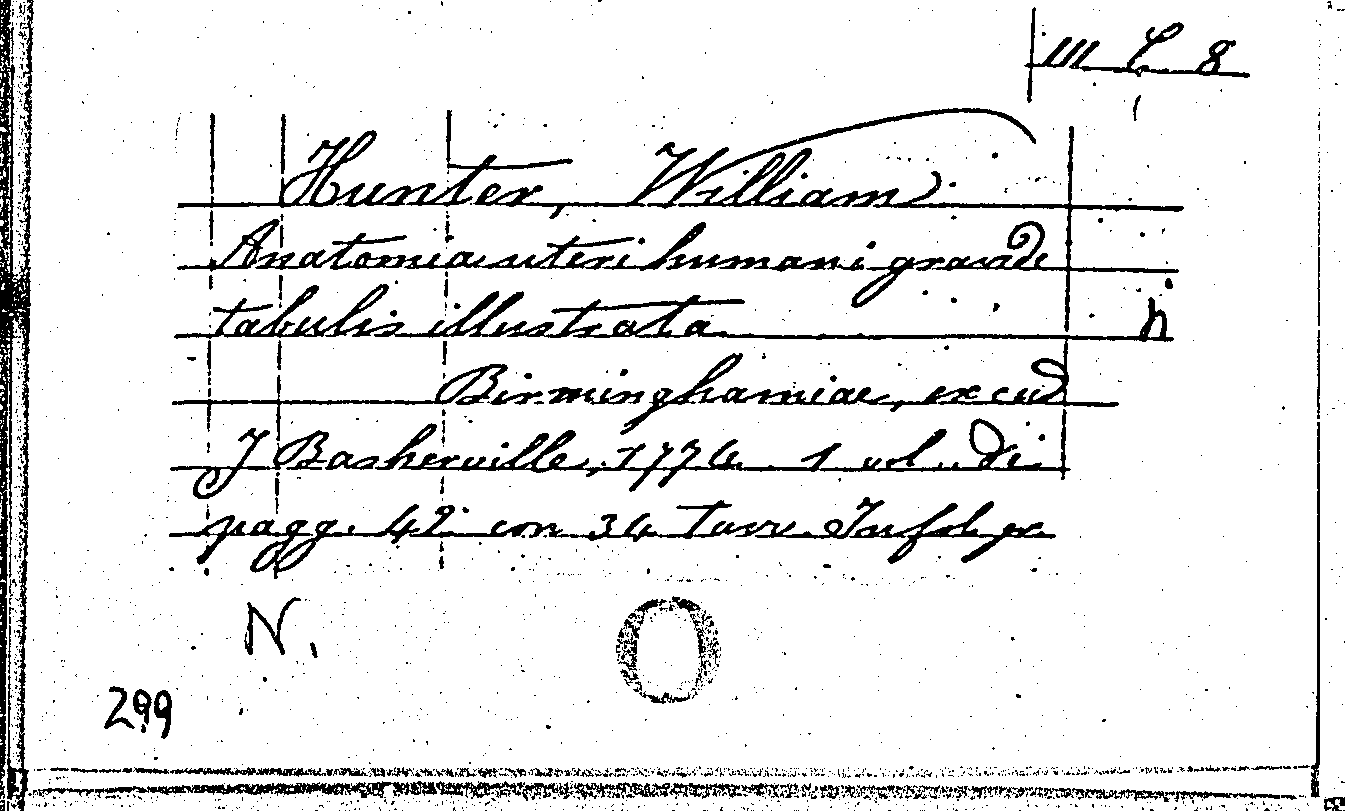 III C 8
Hunter, William
Anatomia uteri humani gravidi
tabulis illustrata
n
Birminghamiae, excud
J Baskerville, 1774. 1 vol. di
pagg. 42 con 34 tavv. In fol. gr.
N.
O
299